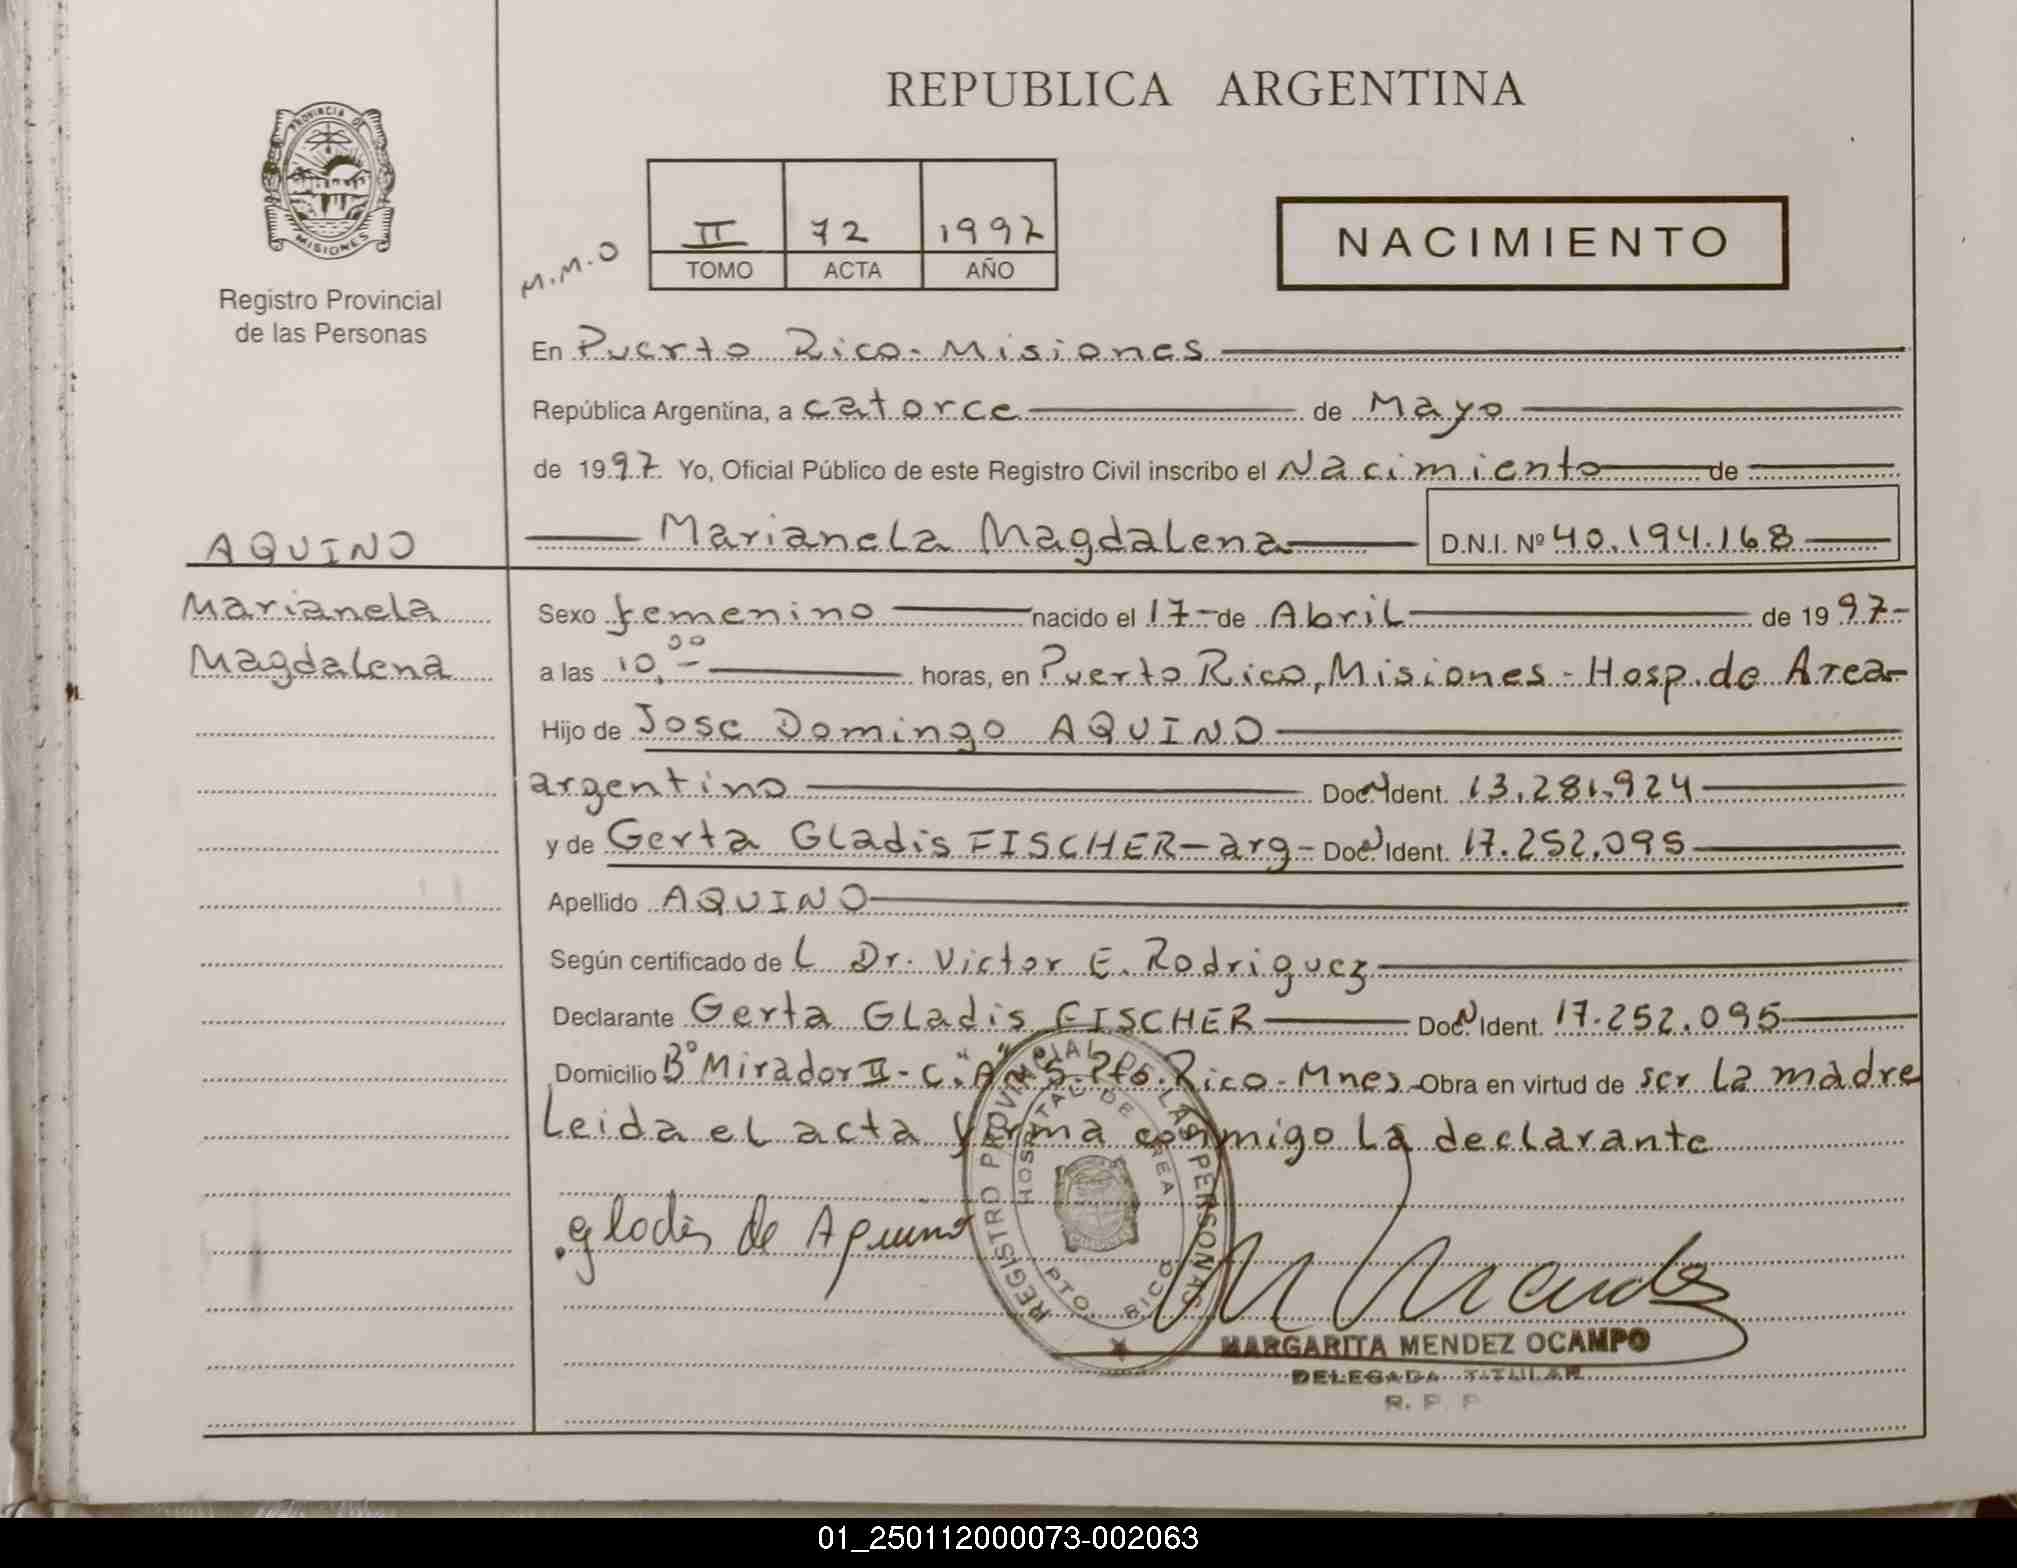 REPUBLICA ARGENTINA
PROVINCIA DE
MISIONES
Registro Provincial
de las Personas
M.M.O
II 72 1997
TOMO ACTA AÑO
NACIMIENTO
En Puerto Rico - Misiones
República Argentina, a catorce de Mayo
de 1997. Yo, Oficial Público de este Registro Civil inscribo el Nacimiento de
AQUINO
Marianela Magdalena D.N.I. Nº 40.194.168
Marianela
Magdalena
Sexo femenino nacido el 17 - de Abril de 1997-
a las 10,00 horas, en Puerto Rico, Misiones - Hosp. de Area-
Hijo de Jose Domingo AQUINO
argentino Doc. N Ident. 13.281.924
y de Gerta Gladis FISCHER - arg - Doc. N Ident. 17.252.095
Apellido AQUINO
Según certificado de L Dr. Victor E. Rodriguez
Declarante Gerta Gladis FISCHER Doc. N Ident. 17.252.095
Domicilio Bº Mirador II - C. "A" Nº 5. Pto. Rico - Mnes - Obra en virtud de ser la madre
Leida el acta y firma conmigo la declarante
gladis de Aquino
REGISTRO PROVINCIAL DE LAS PERSONAS
HOSPITAL DE AREA
PTO. RICO
M Mendez
MARGARITA MENDEZ OCAMPO
DELEGADA TITULAR
R. P. P
01_250112000073-002063